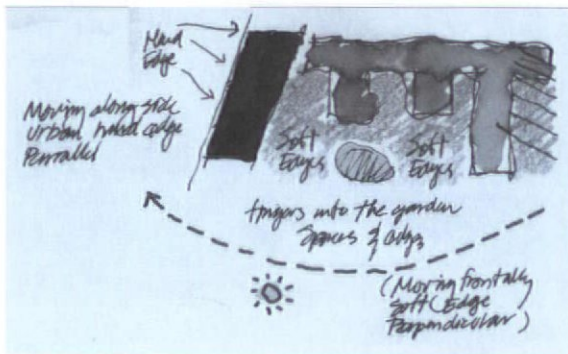 Hard
Edge
Moving along side
Urban hard edge
Parrallel
Soft
Edges
Soft
Edges
fingers into the garden
Spaces & edges
(Moving frontally
Soft (Edge
Perpendicular)